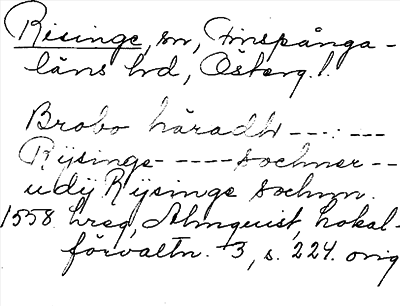 Risinge, sn, Finspånga-
läns hd, Österg. l.
Brobo häradh ---:---
Rÿsinge- ----sochner--
udÿ Rÿsinge sochn.
1558 hreg, Almquist, Lokal-
förvaltn. 3, s. 224. orig